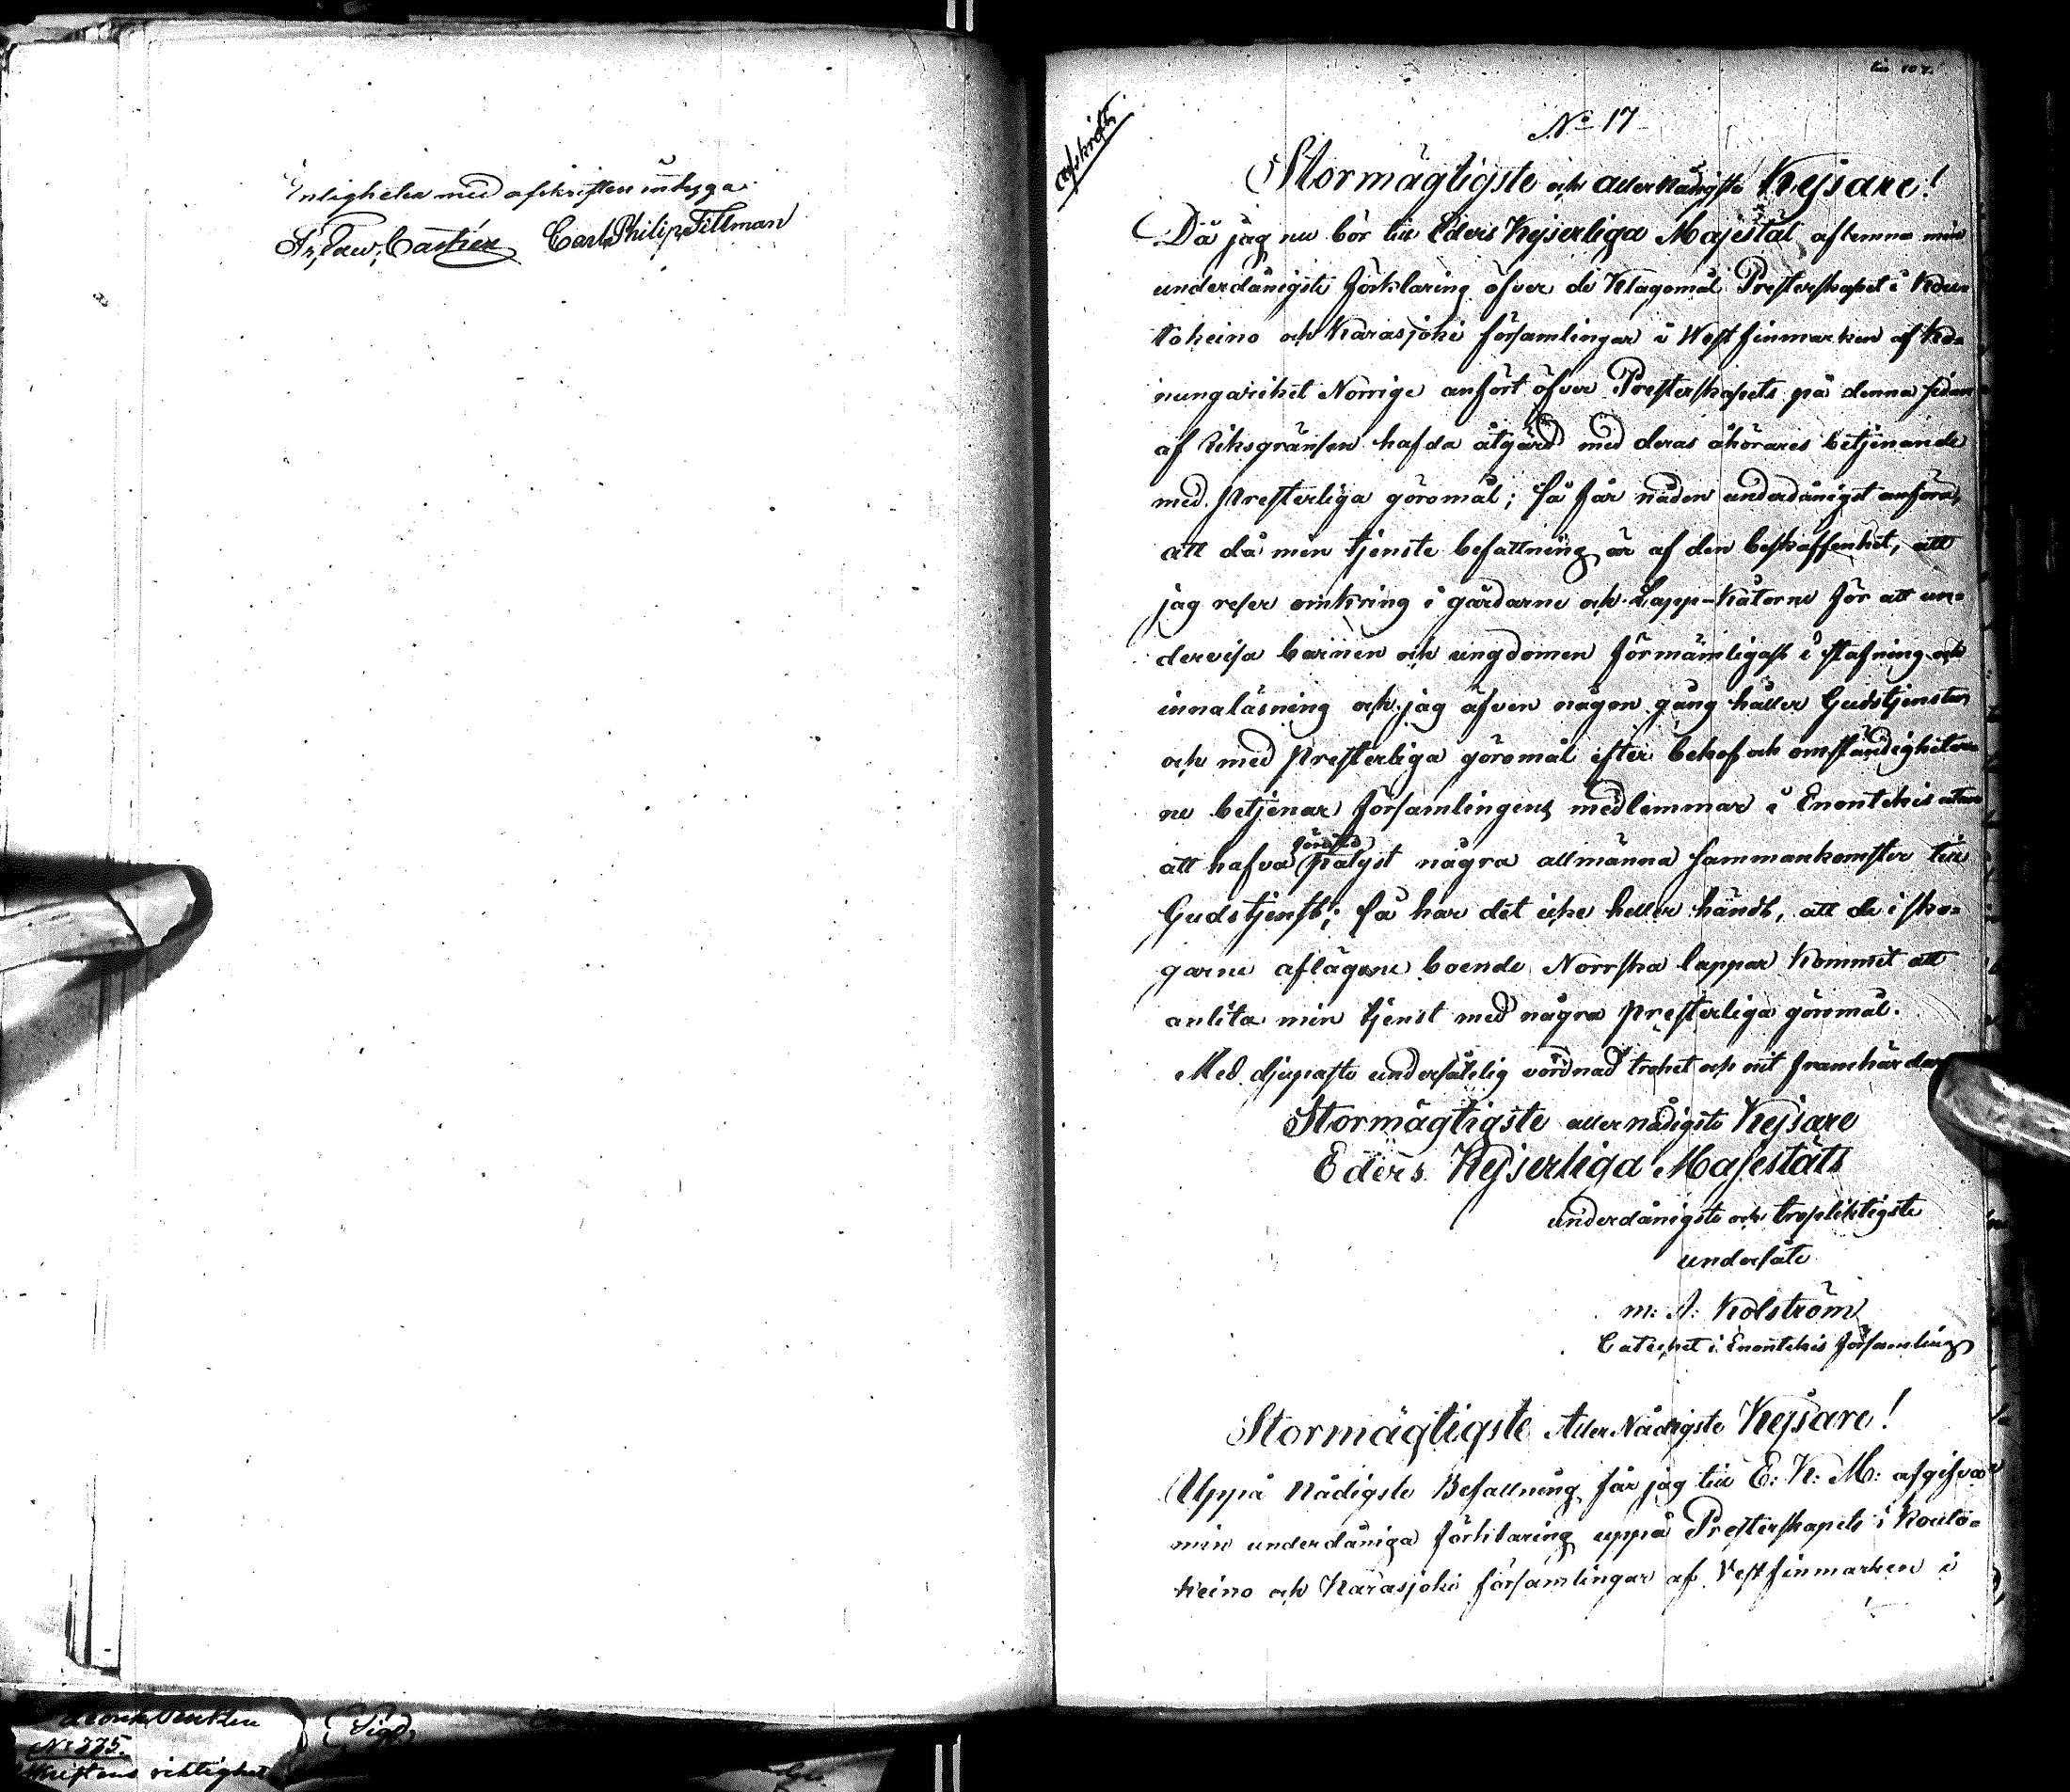 Enligheten med afskriften intyga:
Carl Philip Tillman
afskrift
No 17
Stormägtigste och allernådigste Kejsare!
Då jag nu bör till Eders Kejserliga Majestät aflemna min
underdånigste förklaring öfver de klagomål Presterskapet i Kou-
tokeino och Karasjoki församlingar i Westfinmarken af Ko-
nungariket Norrige anfört öfver Presterskapets på denna sidan
af Riksgränsen hafda åtgärd med deras åhörares betjenande
med presterliga göromål; så får nåden underdånigst anföra,
att då min tjenste befattning är af den beskaffenhet, att
jag reser omkring i gårdarne och Lapp-kåtorne för att un-
dervisa barnen och ungdomen förnämligast i stafning och
innaläsning och jag äfven någon gång håller Gudstjenster,
och med presterliga göromål efter behof och omständigheter-
ne betjenar församlingens medlemmar i Enontekis utan
att hafva pålyst några allmänna sammankomster till
Gudstjenst; så har det icke heller händt, att de i sko-
garne aflägsne boende Norrska lappar kommit att
anlita min tjenst med några presterliga göromål.
Med djupaste undersåtlig vördnad trohet och nit framhärdar
Stormägtigste allernådigste Kejsare
Eders Kejserliga Majestäts
underdånigste och tropliktigste
undersåte
M: J: Kolström
Catechet i Enontekis församling
Stormägtigste AllerNådigste Kejsare!
Uppå Nådigste Befallning får jag till E: K: M: afgifva
min underdåniga förklaring uppå Presterskapets i Kouto-
keino och Karasjoki församlingar af Vestfinmarken i
No 225.
riktighet